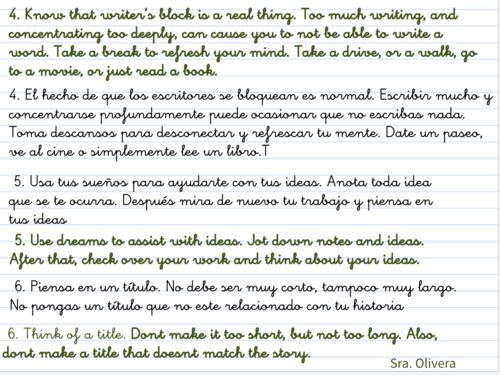 4. Know that writer's block is a real thing. Too much writing, and
concentrating too deeply, can cause you to not be able to write a
word. Take a break to refresh your mind. Take a drive, or a walk, go
to a movie, or just read a book.
4. El hecho de que los escritores se bloquean es normal. Escribir mucho y
concentrarse profundamente puede ocasionar que no escribas nada.
Toma descansos para desconectar y refrescar tu mente. Date un paseo,
ve al cine o simplemente lee un libro.T
5. Usa tus sueños para ayudarte con tus ideas. Anota toda idea
que se te ocurra. Después mira de nuevo tu trabajo y piensa en
tus ideas
5. Use dreams to assist with ideas. Jot down notes and ideas.
After that, check over your work and think about your ideas.
6. Piensa en un título. No debe ser muy corto, tampoco muy largo.
No pongas un título que no este relacionado con tu historia
6. Think of a title. Dont make it too short, but not too long. Also,
dont make a title that doesnt match the story.
Sra. Olivera